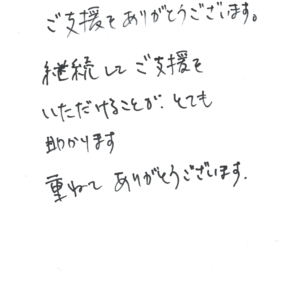 ご支援をありがとうございます。
継続してご支援を
いただけることが、とても
助かります
重ねてありがとうございます.